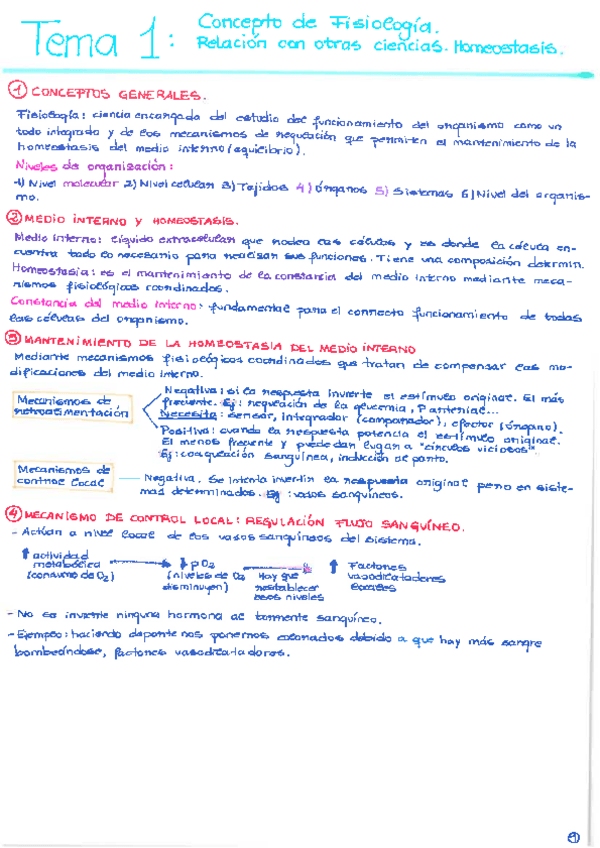 Tema 1:
Concepto de Fisiología.
Relación con otras ciencias. Homeostasis.
① CONCEPTOS GENERALES.
Fisiología: ciencia encargada del estudio del funcionamiento del organismo como un
todo integrado y de los mecanismos de regulación que permiten el mantenimiento de la
homeostasis del medio interno (equilibrio).
Niveles de organización:
1) Nivel molecular 2) Nivel celular 3) Tejidos 4) Órganos 5) Sistemas 6) Nivel del organis-
mo.
② MEDIO INTERNO Y HOMEOSTASIS.
Medio interno: líquido extracelular que rodea las células y es donde la célula en-
cuentra todo lo necesario para realizar sus funciones. Tiene una composición determin.
Homeostasia: es el mantenimiento de la constancia del medio interno mediante meca-
nismos fisiológicos coordinados.
Constancia del medio interno: fundamental para el correcto funcionamiento de todas
las células del organismo.
③ MANTENIMIENTO DE LA HOMEOSTASIA DEL MEDIO INTERNO
Mediante mecanismos fisiológicos coordinados que tratan de compensar las mo-
dificaciones del medio interno.
Mecanismos de
retroalimentación
Negativa: si la respuesta invierte el estímulo original. El más
frecuente. Ej: regulación de la glucemia, P arterial...
Necesita: sensor, integrador (comparador), efector (órgano).
Positiva: cuando la respuesta potencia el estímulo original.
El menos frecuente y puede dar lugar a "círculos viciosos".
Ej: coagulación sanguínea, inducción al parto.
Mecanismos de
control local
Negativa. Se intenta invertir la respuesta original pero en siste-
mas determinados. Ej: vasos sanguíneos.
④ MECANISMO DE CONTROL LOCAL: REGULACIÓN FLUJO SANGUÍNEO.
- Actúan a nivel local de los vasos sanguíneos del sistema.
↑ actividad
metabólica
(consumo de O2)
↓ pO2
(niveles de O2
disminuyen)
Hay que
restablecer
esos niveles
↑ Factores
vasodilatadores
locales
- No se invierte ninguna hormona al torrente sanguíneo.
- Ejemplo: haciendo deporte nos ponemos colorados debido a que hay más sangre
bombeándose, factores vasodilatadores.
1